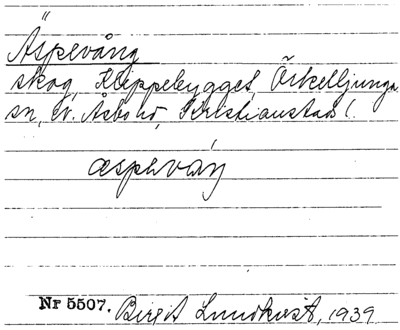 Äspevång
skog, Klippebygget, Örkelljunga
sn, N. Åsbo hd, Kristianstads l.
æspevåŋ
Nr 5507. Birgit Lundkvist, 1939